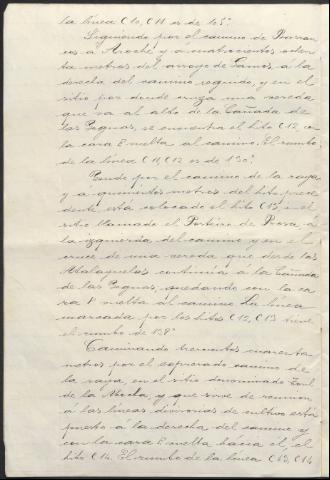 la línea C 10, C 11 es de 105°.
Siguiendo por el camino de Barran
cos á Aroche y á cuatrocientos ochen
ta metros del arroyo de Gamos, á la
derecha del camino seguido, y en el
sitio por donde cruza una vereda
que va al alto de la Cañada de
las Yeguas, se encuentra el hito C 12, co
la cara E vuelta al camino. El rumbo
de la línea C 11, C 12 es de 130°.
por el camino de la raya
y á quinientos metros del hito prece
dente está colocado el hito C 13, en el
sitio llamado el Porteiro de á la
izquierda del camino y en el
cruce de una vereda que desde las
Atalayuelas continúa á la Cañada
de las Yeguas, quedando con la ca
ra P vuelta al camino. La línea
marcada por los hitos C 12, C 13 tiene
el rumbo de 138°.
Caminando trescientos cuarenta
metros por el expresado camino de
la raya, en el sitio denominado
de la y que sirve de reunión
á las líneas divisorias de cultivo está
puesto á la derecha del camino y
con la cara E vuelta hácia él, el
hito C 14. El rumbo de la línea C 13, C 14